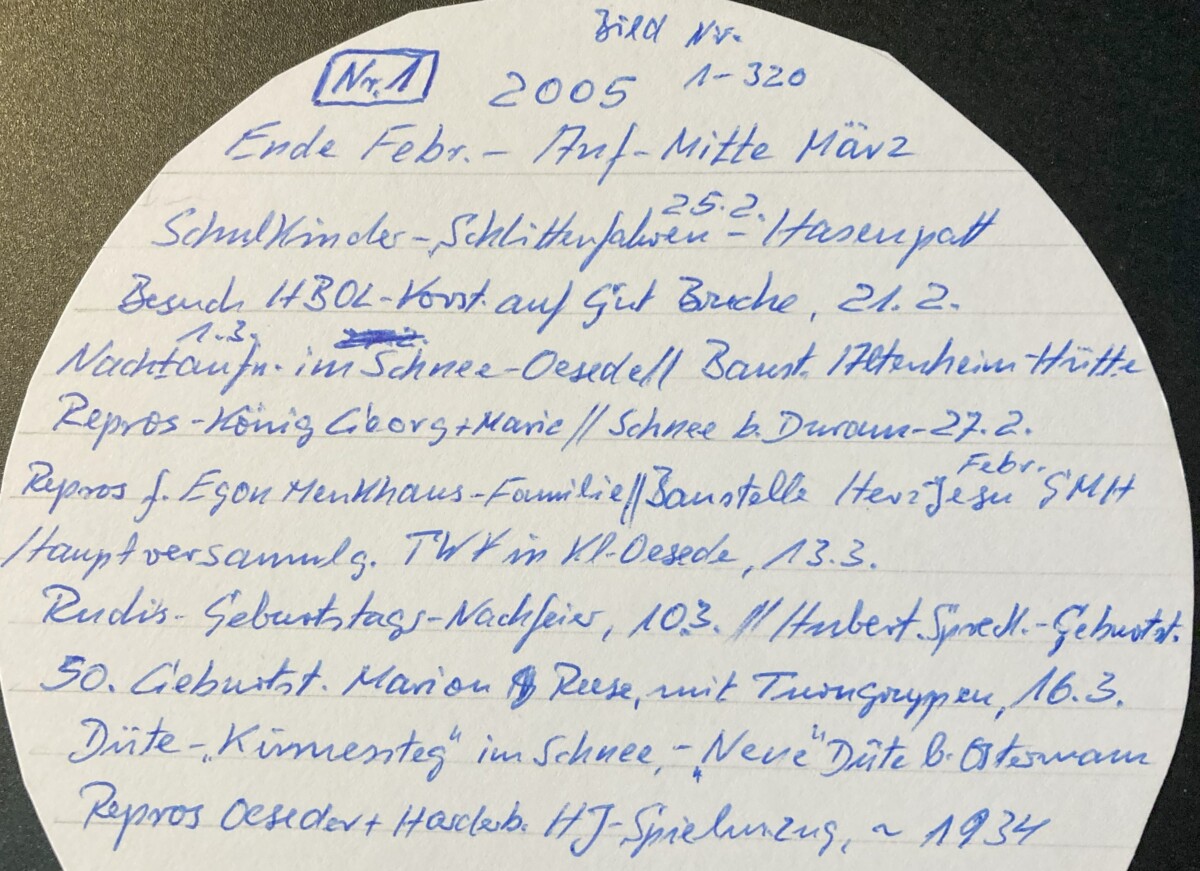 Bild Nr.
Nr. 1 2005 1-320
Ende Febr. - Anf - Mitte März
25.2.
Schulkinder - Schlittenfahren - Hasenpatt
Besuch HBOL-Vorst. auf Gut Bruche, 21.2.
1.3.
Nachtaufn. im Schnee-Oesede // Baust. Altenheim-Hütte
Repros - König Georg + Marie // Schnee b. Duram - 27.2.
Febr.
Repros f. Egon Menkhaus-Familie // Baustelle Herz Jesu GMH
Hauptversammlg. TWV in Kl-Oesede, 13.3.
Rudis - Geburtstags-Nachfeier, 10.3. // Hubert. Spreck.-Geburtst.
50. Geburtst. Marion Reese, mit Turngruppen, 16.3.
Düte - „Kirmessteg" im Schnee, - „Neue" Düte b. Ostermann
Repros Oeseder + Harderb. HJ-Spielmzug, ~ 1934